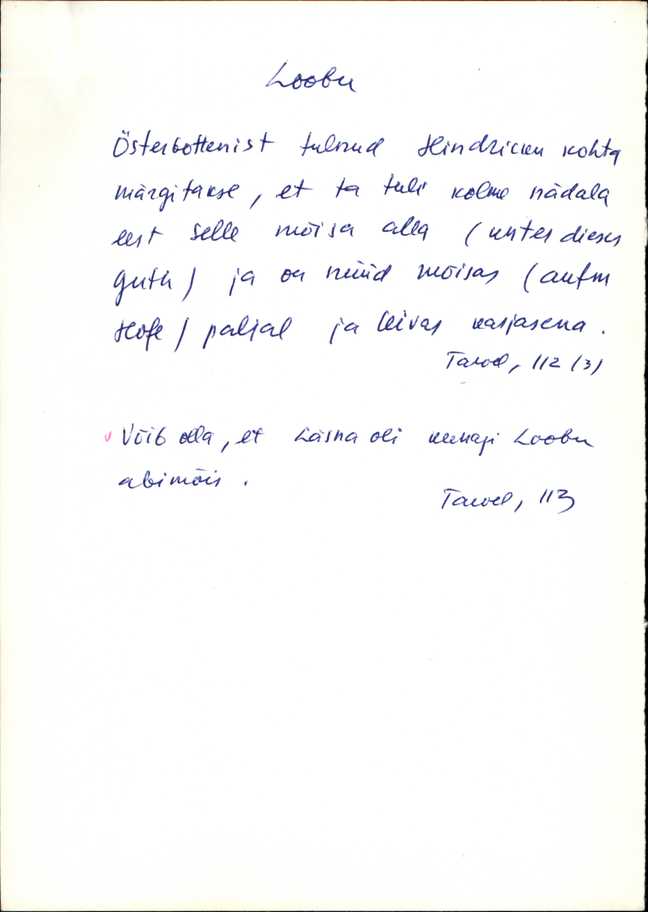 Loobu
Österbottenist tulnud Hindricku kohta
märgitakse, et ta tuli kolme nädala
eest selle mõisa alla (unter dieses
guth) ja on nüüd mõisas (aufm
Hofe) paljal ja leivas karjasena.
112 (3)
Võib olla, et Läsna oli kunagi Loobu
abimõis.
113